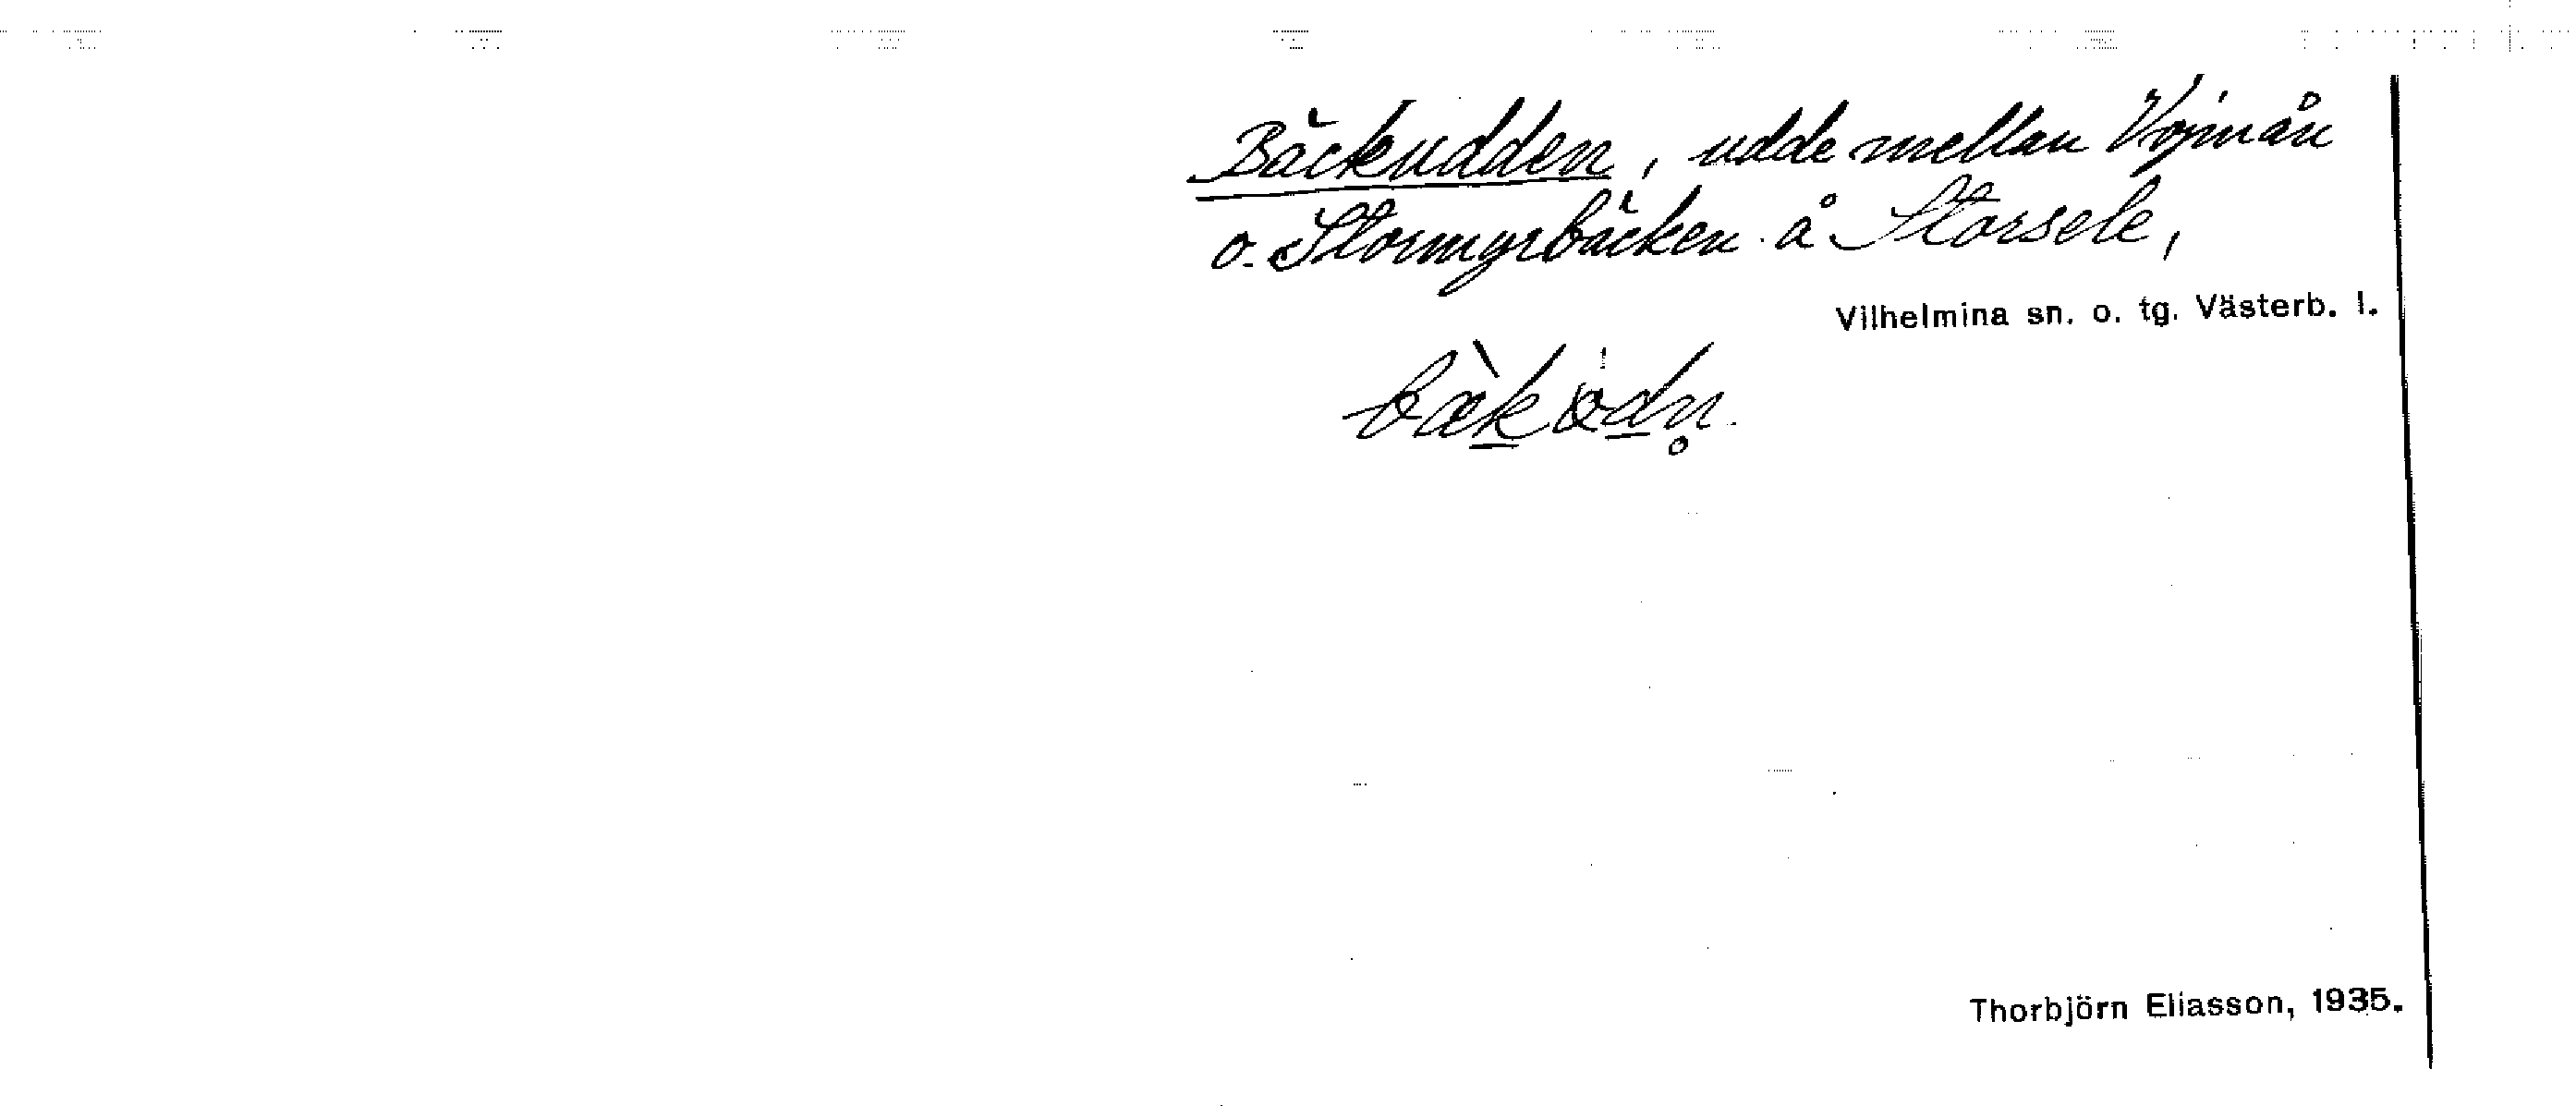 Bäckudden, udde mellan Vojmån
o. Stormyrbäcken å Storsele,
Vilhelmina sn. o. tg. Västerb. l.
Thorbjörn Eliasson, 1935.